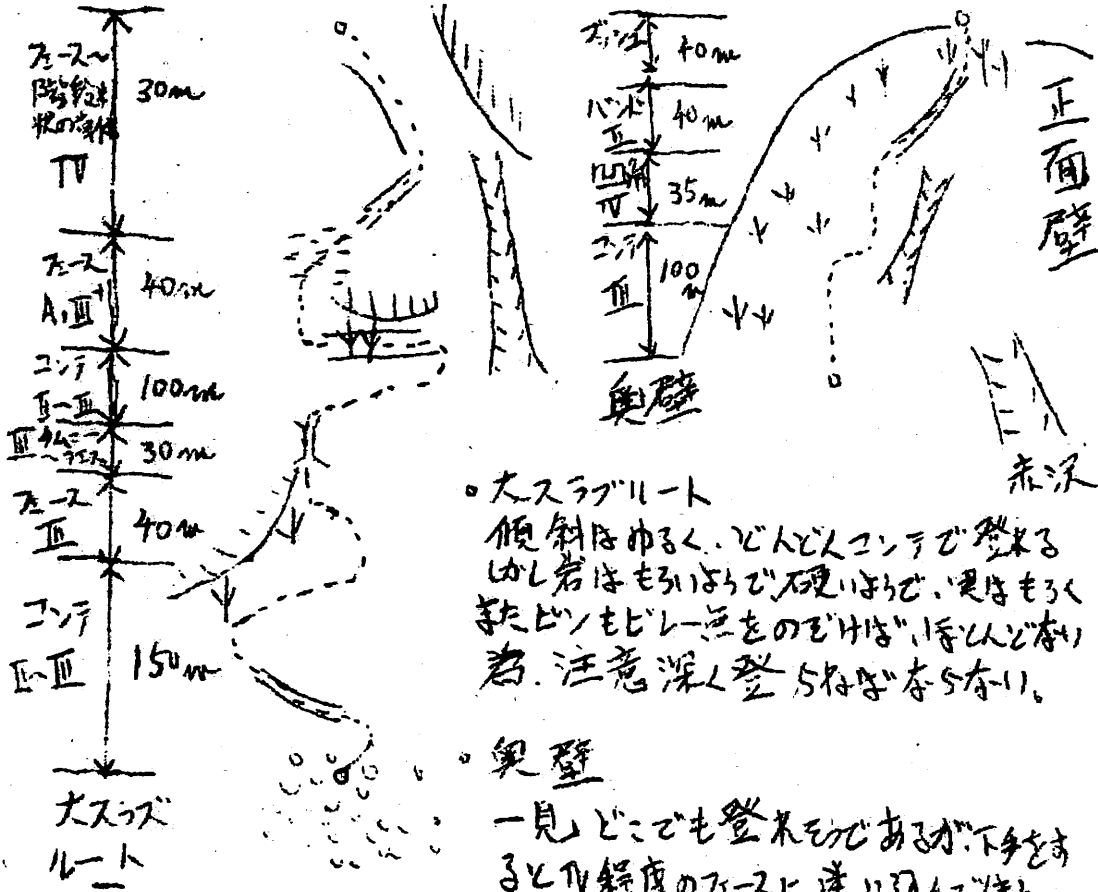 フェース〜
階段
状の岩稜
IV
30m
フェース
A₁III⁺
40m
コンテ
II〜III
100m
III チムニー
〜フェース
30m
フェース
III
40m
コンテ
II〜III
150m
大スラブ
ルート
ブッシュ
40m
バンド
II
40m
凹角
IV
35m
コンテ
III
100m
奥壁
正面壁
赤沢
○大スラブルート
傾斜はゆるく、どんどんコンテで登れる
しかし岩はもろいようで、硬いようで、実はもろく
またピンもビレー点をのぞけば、ほとんどない
為、注意深く登らねばならない。
○奥壁
一見、どこでも登れそうであるが、下手をす
るとIV程度のフェースに迷い込んで